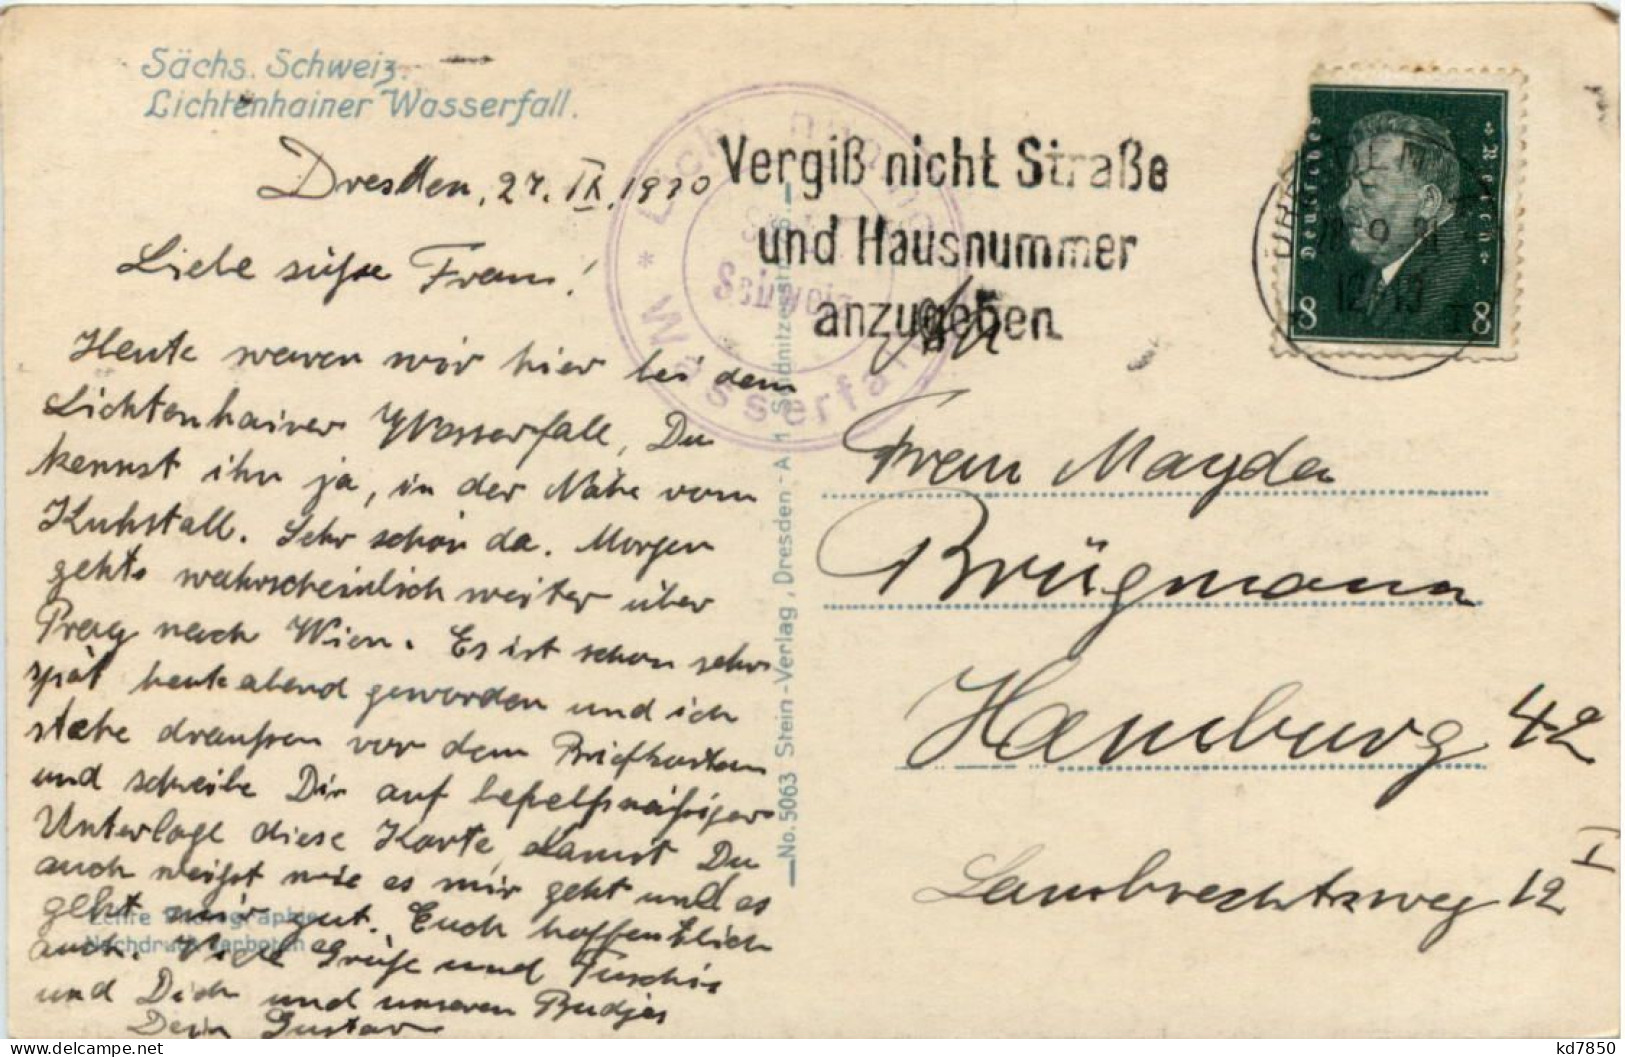 Sächs. Schweiz.
Lichtenhainer Wasserfall.
Dresden, 27. IX. 1930
Liebe süße Frau!
Heute waren wir hier bei dem
Lichtenhainer Wasserfall, Du
kennst ihn ja, in der Nähe vom
Kuhstall. Sehr schön da. Morgen
gehts wahrscheinlich weiter über
Prag nach Wien. Es ist schon sehr
spät heute abend geworden und ich
stehe draußen vor dem Briefkasten
und schreibe Dir auf behelfsmäßiger
Unterlage diese Karte, damit Du
auch weißt wie es mir geht und es
geht mir gut. Euch hoffentlich
auch. Viele Grüße und
und Dich und unseren
Dein Gustav
Echte Photographie
Nachdruck verboten
No. 5063 Stein-Verlag, Dresden-A. 1
Wasserfall
Schweiz
Vergiß nicht Straße
und Hausnummer
anzugeben
Deutsches Reich
8 8
An
Frau Magda
Brügmann
Hamburg 42
Lambrechtsweg 12 I
kd7850